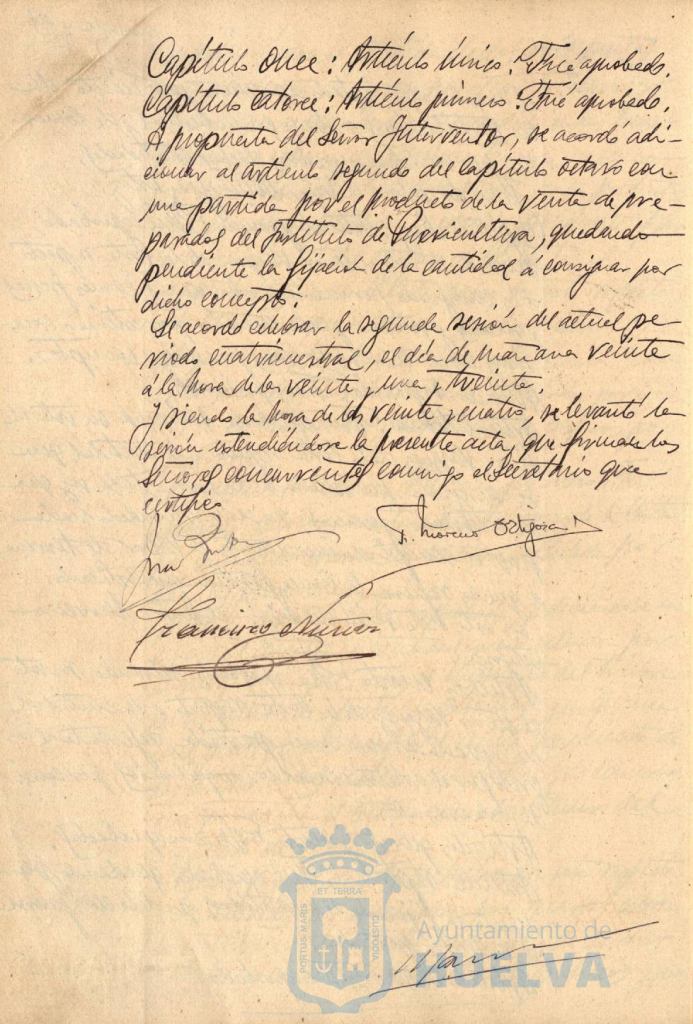 Capítulo Once: Artículo único. Fué aprobado.
Capítulo Catorce: Artículo primero. Fué aprobado.
A propuesta del Señor Interventor, se acordó adi-
cionar al artículo segundo del Capítulo Octavo con
una partida por el producto de la venta de pre-
parados del Instituto de Puericultura, quedando
pendiente la fijación de la cantidad á consignar por
dicho concepto.
Se acordo celebrar la segunda sesión del actual pe-
riodo cuatrimestral, el día de mañana veinte
á la hora de las veinte y una y treinta.
Y siendo la hora de las veinte y cuatro, se levantó la
sesión extendiéndose la presente acta, que firman los
Señores concurrentes conmigo el Secretario que
certifico
F. Moreno Ortigosa
Francisco Núñez
ET TERRA
PORTUS MARIS
CUSTODIA
Ayuntamiento de
HUELVA